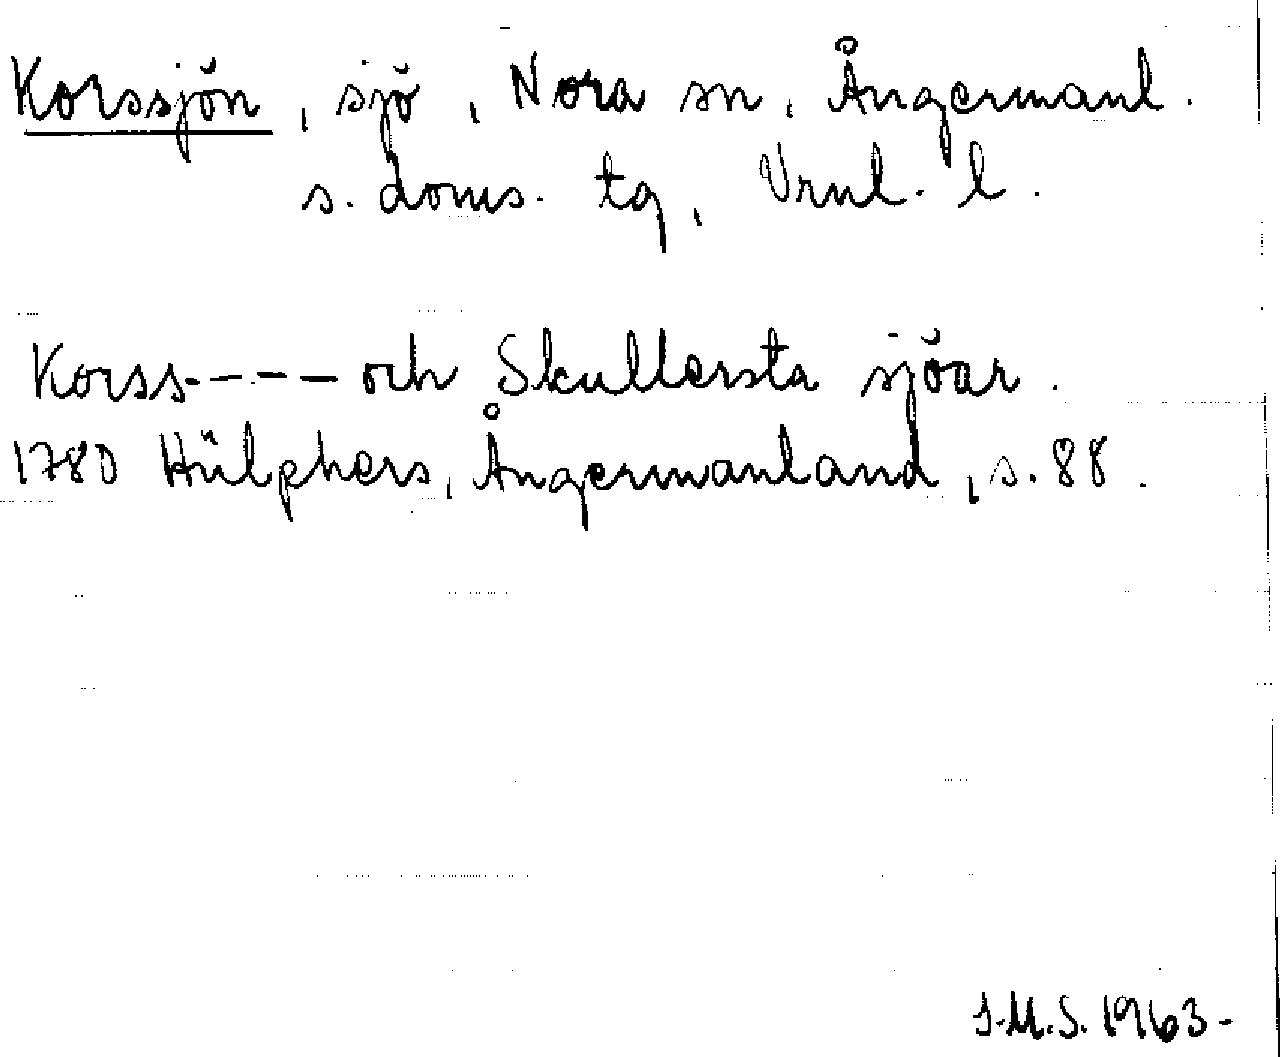 Korssjön, sjö, Nora sn, Ångermanl.
s. doms. tg, Vrnl. l.
Korss---- och Skullersta sjöar.
1780 Hülphers, Ångermanland, s. 88.
J.M.S. 1963-